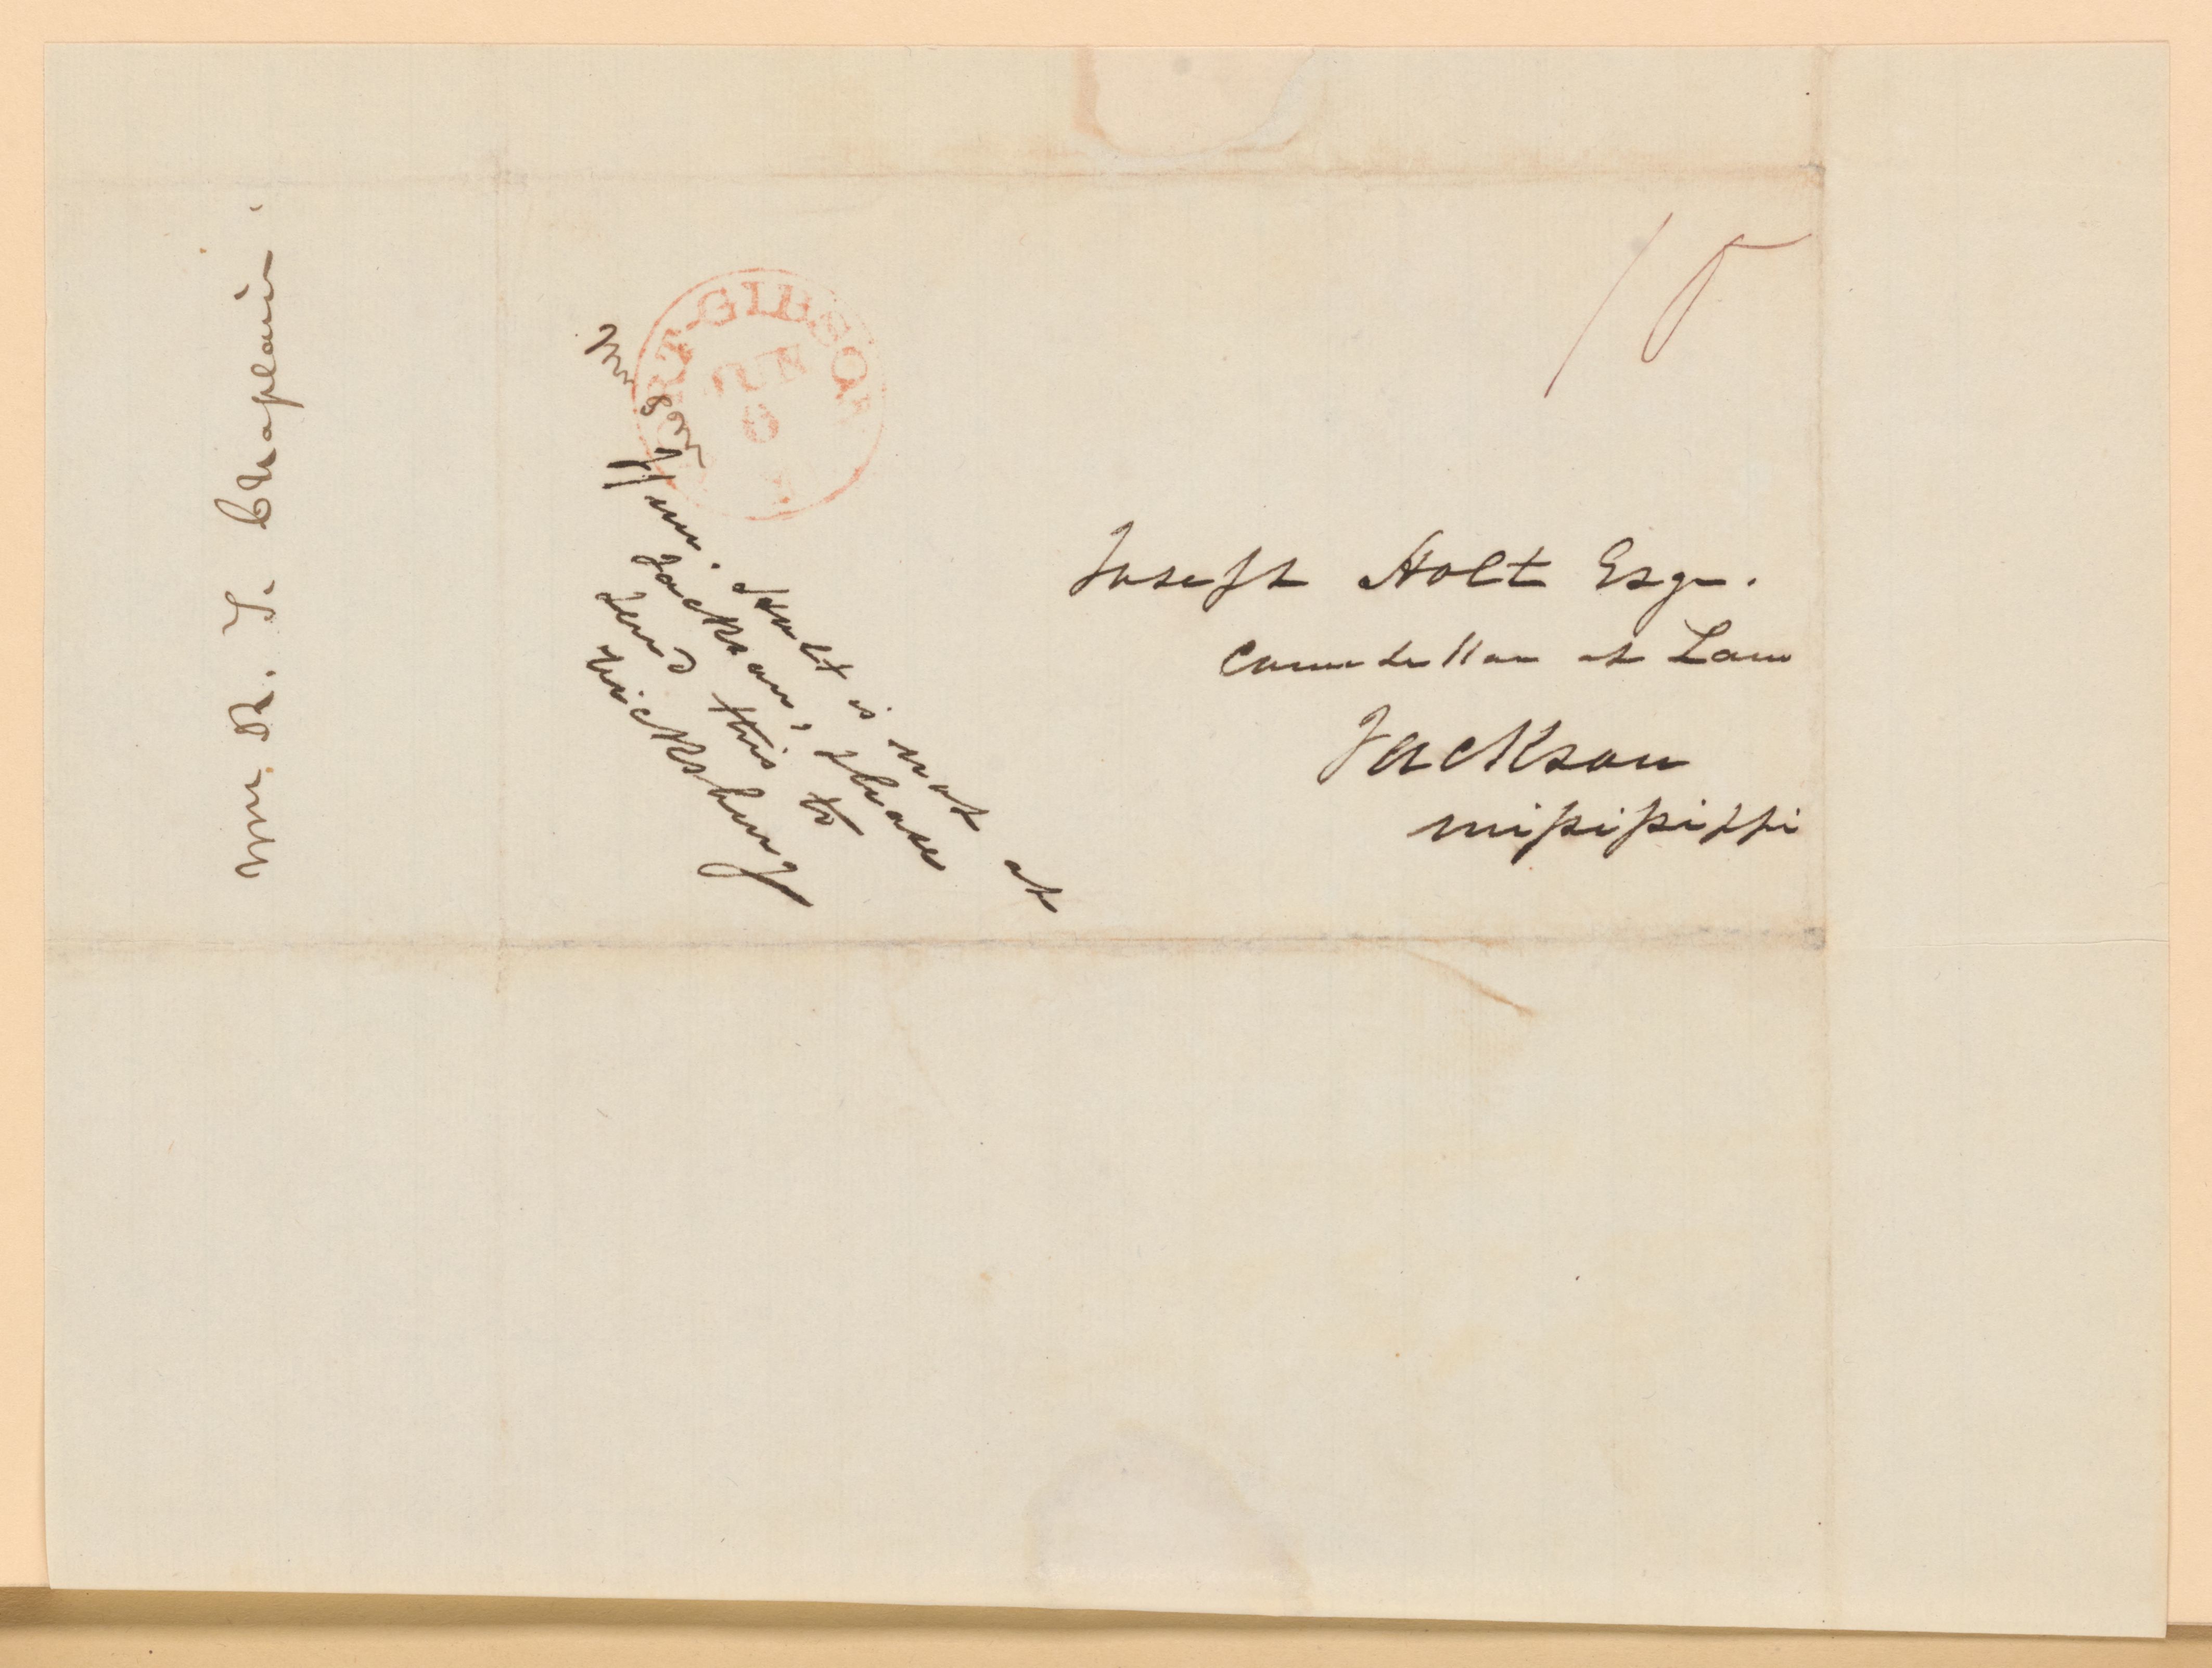 Wm. R. T. Chaplain.
PORT-GIBSON
JUN
6
If mr. Holt is not at
Jackson, please
send this to
Vicksburg
Joseph Holt Esqr.
Counsellor at Law
Jackson
Mississippi